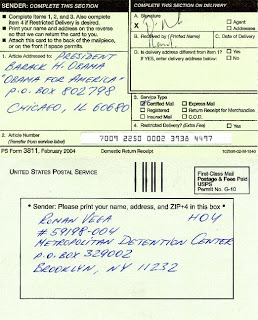 SENDER: COMPLETE THIS SECTION
■ Complete items 1, 2, and 3. Also complete
item 4 if Restricted Delivery is desired.
■ Print your name and address on the reverse
so that we can return the card to you.
■ Attach this card to the back of the mailpiece,
or on the front if space permits.
1. Article Addressed to: PRESIDENT
BARACK H. OBAMA
"OBAMA FOR AMERICA"
P.O. BOX 802798
CHICAGO, IL 60680
COMPLETE THIS SECTION ON DELIVERY
A. Signature
X
Agent
Addressee
B. Received by (Printed Name)
C. Date of Delivery
D. Is delivery address different from item 1? Yes
If YES, enter delivery address below: No
3. Service Type
Certified Mail Express Mail
Registered Return Receipt for Merchandise
Insured Mail C.O.D.
4. Restricted Delivery? (Extra Fee) Yes
2. Article Number
(Transfer from service label)
7009 2250 0002 3938 4497
PS Form 3811, February 2004 Domestic Return Receipt
UNITED STATES POSTAL SERVICE
First-Class Mail
Postage & Fees Paid
USPS
Permit No. G-10
• Sender: Please print your name, address, and ZIP+4 in this box •
ROMAN VEGA HO4
# 59198-004
METROPOLITAN DETENTION CENTER
P.O. BOX 329002
BROOKLYN, NY 11232